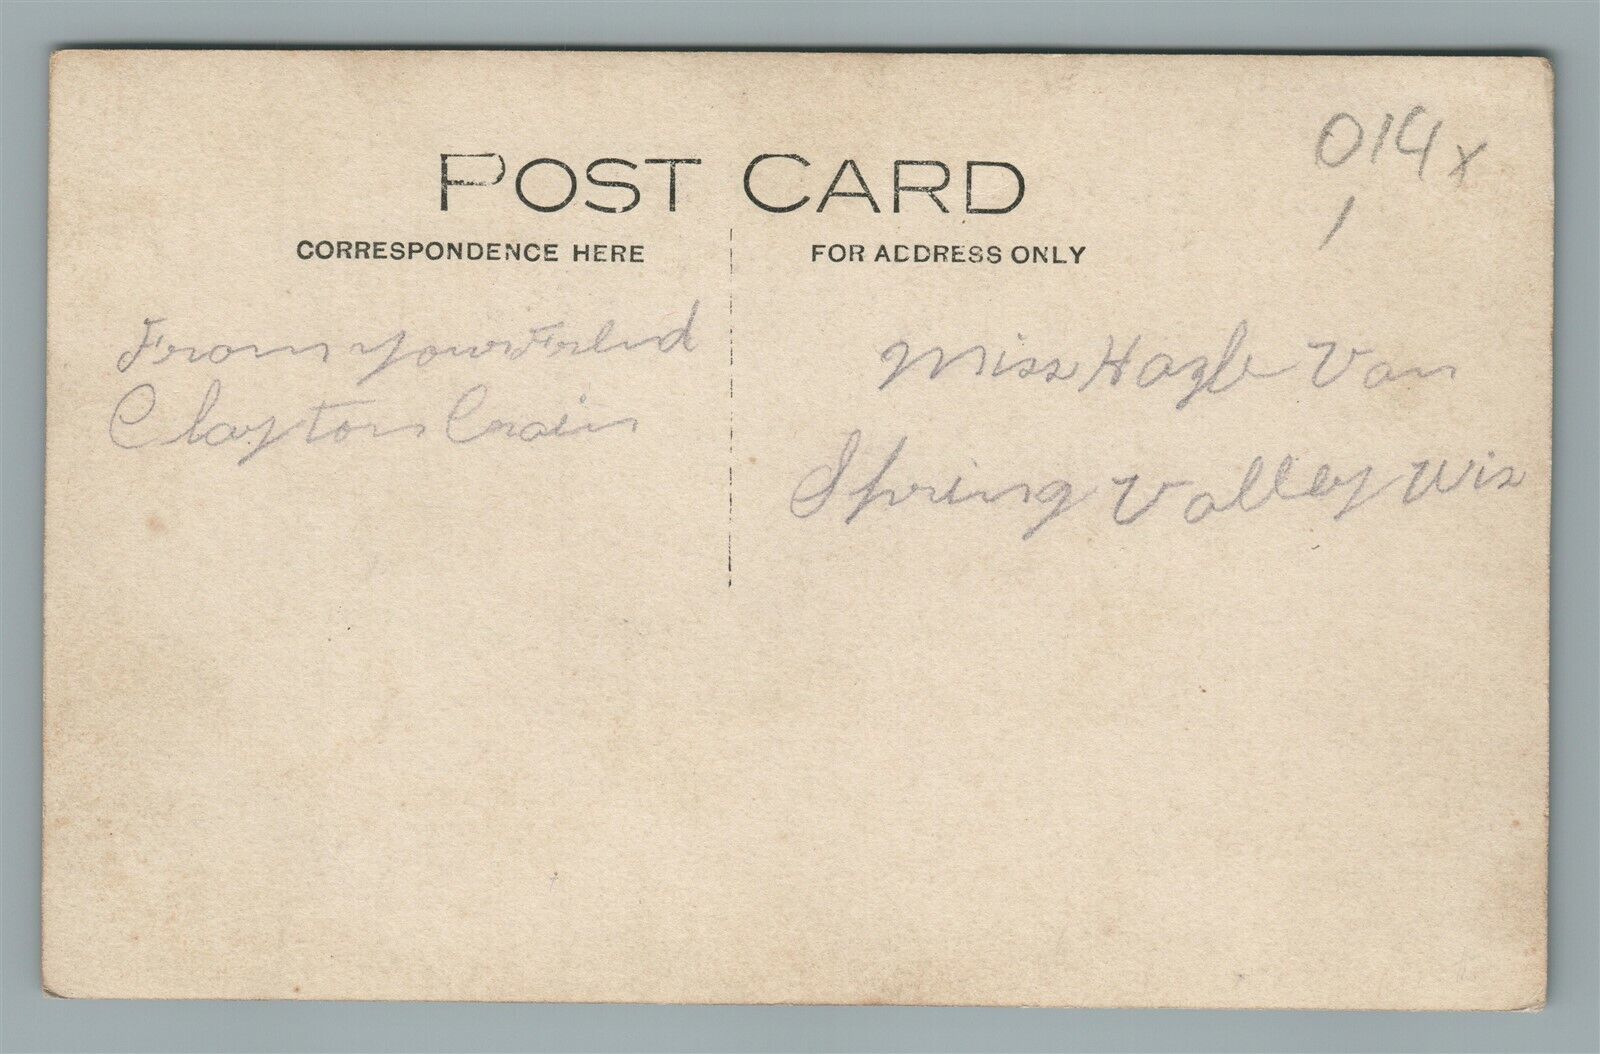 POST CARD
CORRESPONDENCE HERE
FOR ADDRESS ONLY
014x
From your Frend
Clayton Crain
Miss Hazle Van
Spring Valley Wis